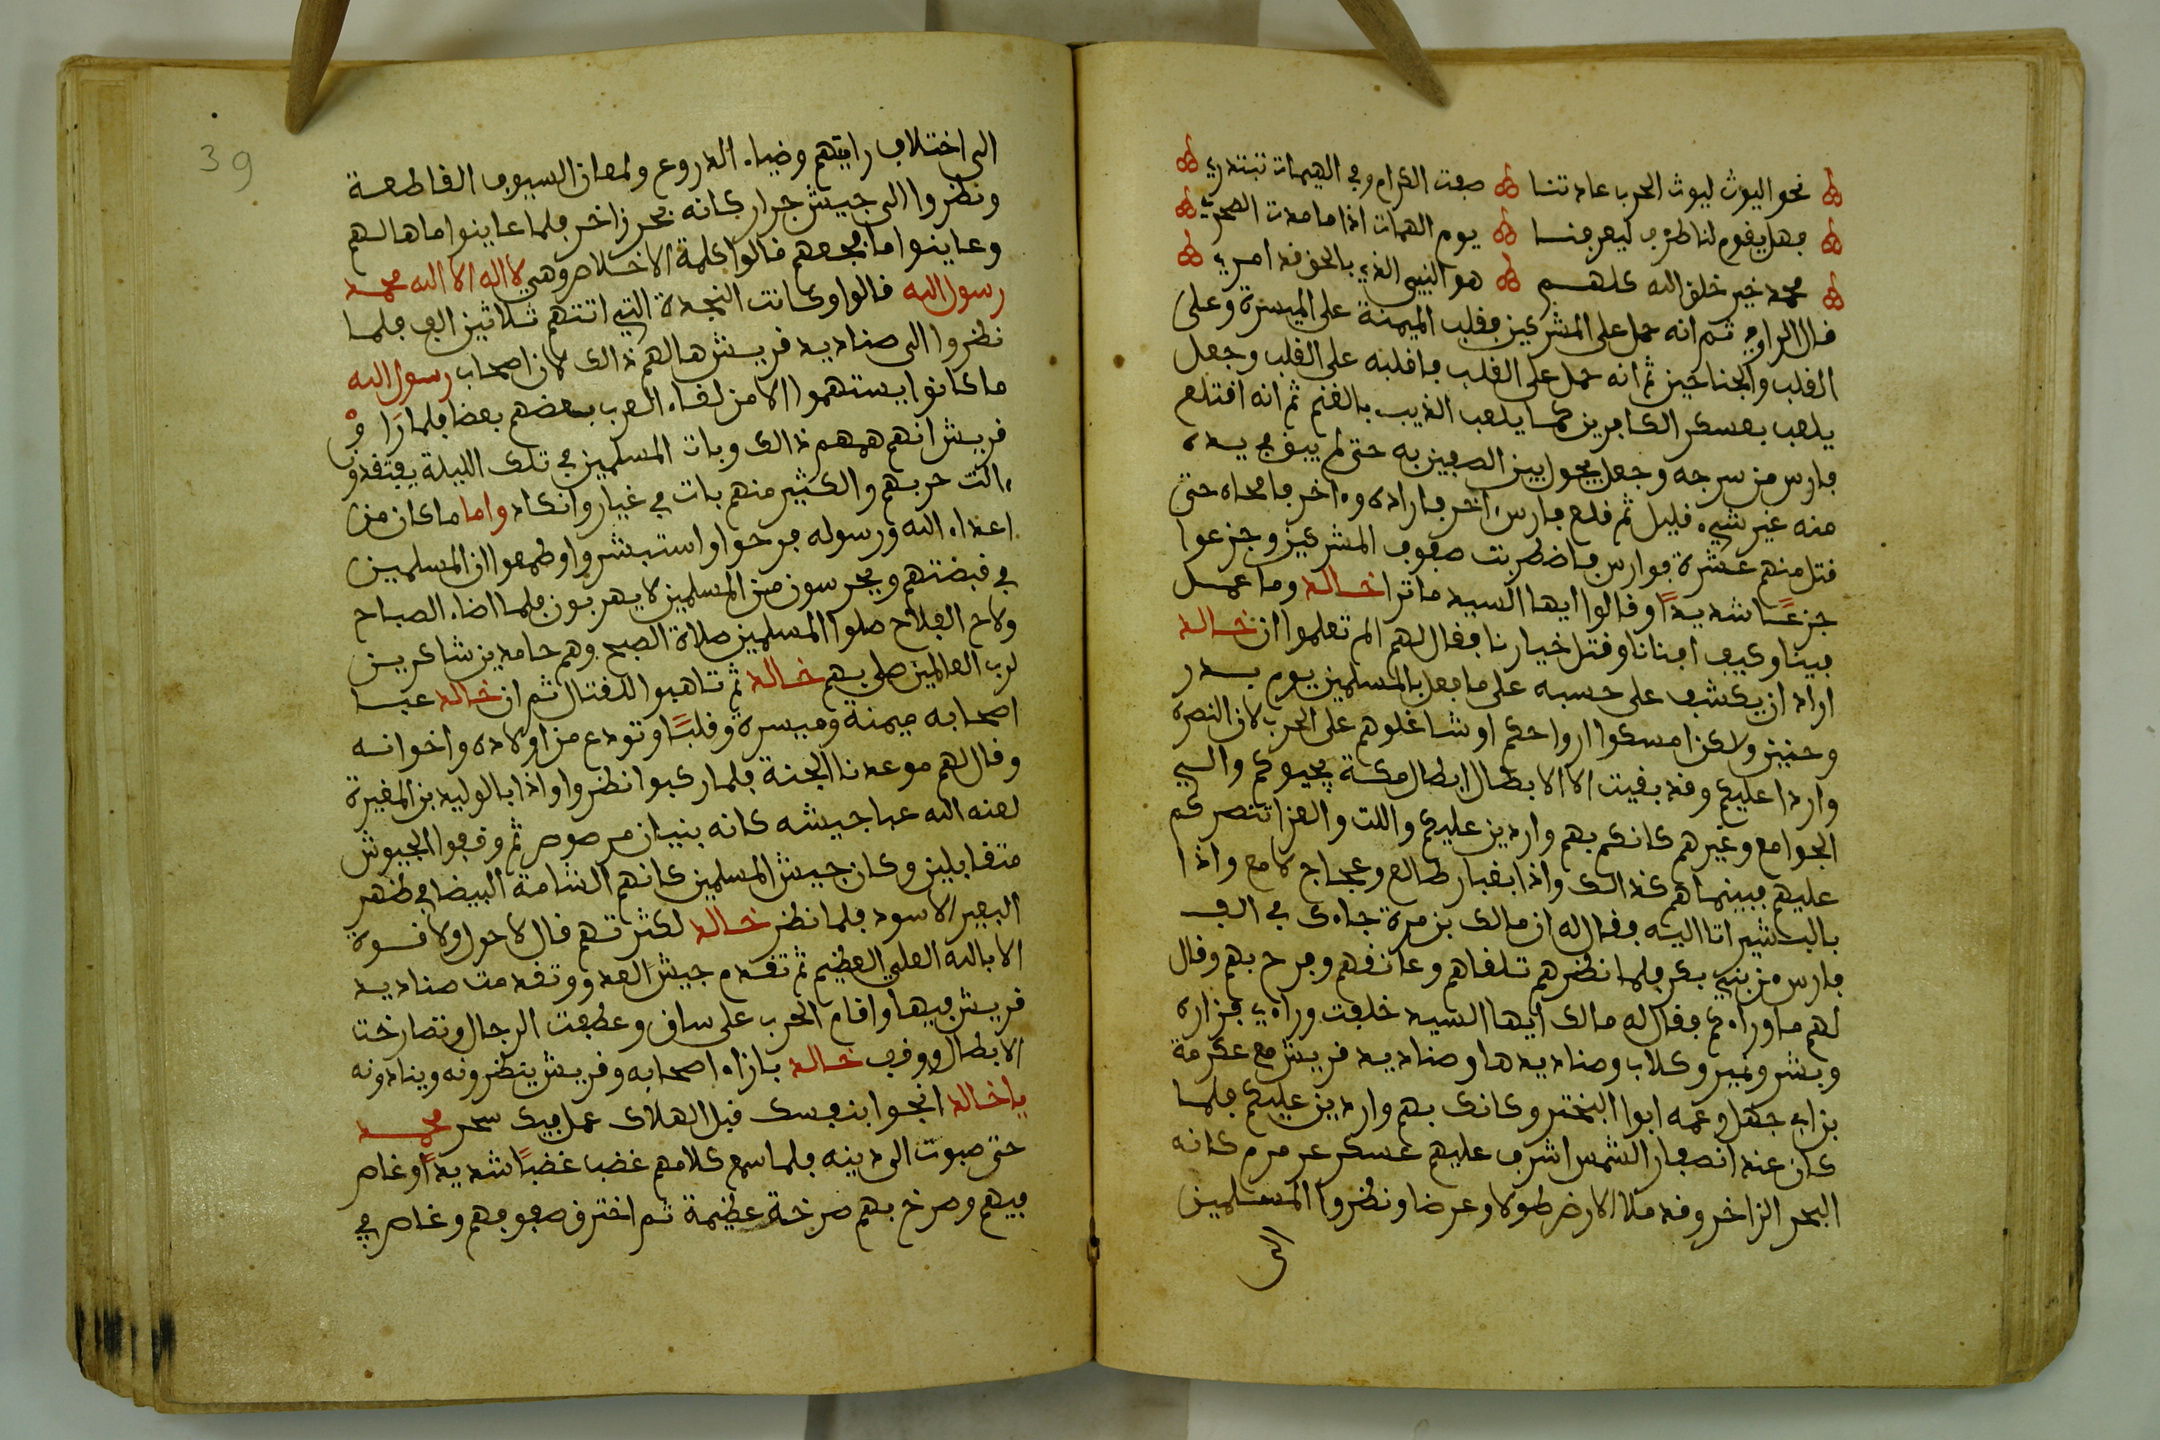 نحو اليوث ليوث الحرب عادتنا صفت الكرام وفي الهيجات تبتدري
فهل يقوم لنا طرف ليعرفنا يوم الهمات اذا ما مدت
محمد خير خلق الله كلهم هو النبي الذي بالحق قد امري
قال الراوي ثم انه حمل على المشركين فقلب الميمنة على الميسرة وعلى
القلب والجناحين ثم انه حمل على القلب فاقلبه على القلب وجعل
يلعب بعسكر الكافرين كما يلعب الذيب بالغنم ثم انه اقتلع
فارس من سرجه وجعل يجول بين الصفين به حتى لم يبق في يده
منه غير شيء قليل ثم قلع فارس اخر فاراده وءاخر فامحاه حتى
قتل منهم عشرة فوارس فاضطربت صفوف المشركين وجزعوا
جزعًا شديدًا وقالوا ايها السيد ما ترا خالد وما عمل
فينا وكيف افنانا وقتل خيارنا فقال لهم الم تعلموا ان خالد
اراد ان يكشف على حسبه على ما فعل بالمسلمين يوم بدر
وحنين ولاكن امسكوا ارواحكم او شاغلوهم على الحرب لان النصرة
واردا عليكم وقد بقيت الا الابطال ابطال مكة يجيوكم والـ
الجوامع وغيرهم كانكم بهم واردين عليكم واللت والعزا تنصركم
عليهم فبينماهم كذالك واذا بغبار طالع وعجاج لامع واذا
بالبشير اتا اليه وقال له ان مالك بن مرة جاءك في الف
فارس من بني بكر فلما نظرهم تلقاهم وعانقهم وفرح بهم وقال
لهم ما وراءكم فقال له مالك ايها السيد خلفت وراءي فزاره
وبشر ونمير وكلاب وصناديدها وصناديد قريش مع عكرمة
بن ابي جهل وعمه ابوا البختر وكانك بهم واردين عليكم فلما
كان عند اصفار الشمس اشرف عليهم عسكر عرمرم كانه
البحر الزاخر وقد ملا الارض طولا وعرضا ونظروا المسلمين
الى
39
الى اختلاف رايتهم وضياء الدروع ولمعان السيوف القاطعة
ونظروا الى جيش جرار كانه بحر زاخر فلما عاينوا ما هالهم
وعاينوا ما فجعهم قالوا كلمة الاخلاص وهي لا اله الا الله محمد
رسول الله قالوا وكانت النجدة التي اتتهم ثلاثين الف فلما
نظروا الى صناديد قريش هالهم ذالك لان اصحاب رسول الله
ما كانوا يستهموا الا من لقاء العرب بعضهم بعضا فلما راوْ
قريش انهم همهم ذالك وبات المسلمين في تلك الليلة يفتقدو
ءالت حربهم والكثير منهم بات في غيار وانكاد واما ما كان من
اعداء الله ورسوله فرحوا واستبشروا وطمعوا ان المسلمين
في قبضتهم ويحرسون من المسلمين لا يهربون فلما اضاء الصباح
ولاح الفلاح صلوا المسلمين صلاة الصبح وهم حامدين شاكرين
لرب العالمين صلى بهم خالد ثم تاهبوا للقتال ثم ان خالد عبا
اصحابه ميمنة وميسرة وقلبًا وتودع من اولاده واخوانه
وقال لهم موعدنا الجنة فلما ركبوا انظروا واذا بالوليد بن المغيرة
لعنه الله عبا جيشه كانه بنيان مرصوص ثم وقفوا الجيوش
متقابلين وكان جيش المسلمين كانهم الشامة البيضا في ظهر
البعير الاسود فلما نظر خالد لكثرتهم قال لا حول ولا قوة
الا بالله العلي العظيم ثم تقدم جيش العدو وتقدمت صناديد
قريش فيها واقام الحرب على ساق وعطفت الرجال وتصارخت
الابطال ووقف خالد بازاء اصحابه وقريش ينظرونه وينادونه
يا خالد انجوا بنفسك قبل الهلاك عمل فيك سحر محمد
حتى صبوت الى دينه فلما سمع كلامهم غضب غضبًا شديدًا وغاص
فيهم وصرخ بهم صرخة عظيمة ثم اخترق صفوفهم وغاص في